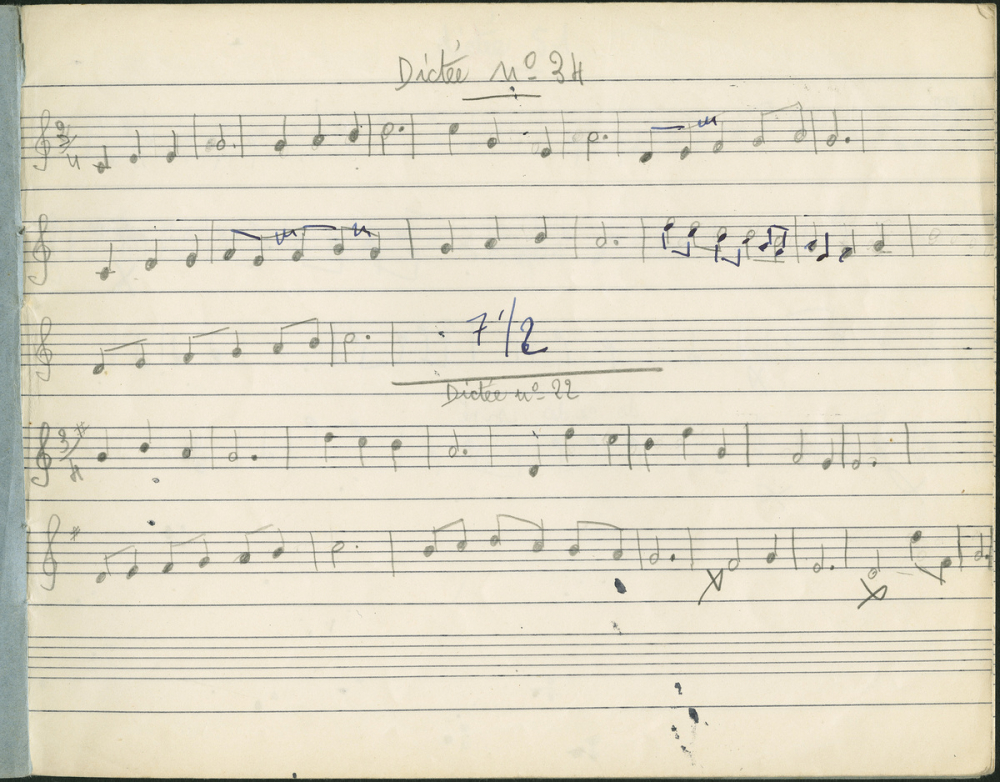 Dictée nº 34
3/4
7 1/2
Dictée nº 22
3/4